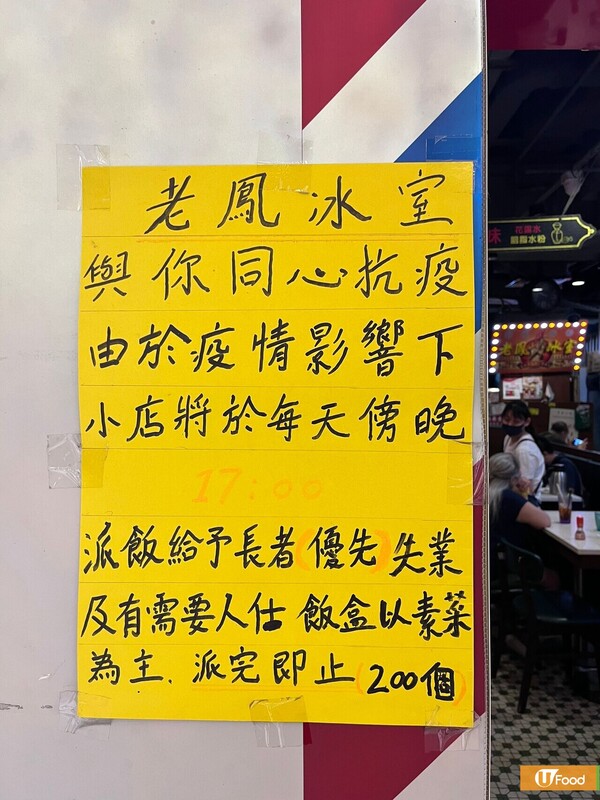 老鳳冰室
與你同心抗疫
由於疫情影響下
小店將於每天傍晚
17:00
派飯給予長者(優先)失業
及有需要人仕 飯盒以素菜
為主、派完即止(200個)
花露水
老鳳冰室
U Food